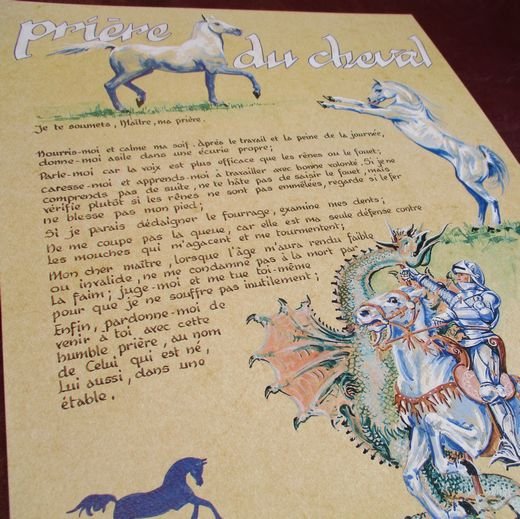 prière du cheval
Je te soumets, Maître, ma prière.
Nourris-moi et calme ma soif. Après le travail et la peine de la journée,
donne-moi asile dans une écurie propre;
Parle-moi car la voix est plus efficace que les rênes ou le fouet;
caresse-moi et apprends-moi à travailler avec bonne volonté. Si je ne
comprends pas de suite, ne te hâte pas de saisir le fouet, mais
vérifie plutôt si les rênes ne sont pas emmêlées, regarde si le fer
ne blesse pas mon pied;
Si je parais dédaigner le fourrage, examine mes dents;
Ne me coupe pas la queue, car elle est ma seule défense contre
les mouches qui m'agacent et me tourmentent;
Mon cher maître, lorsque l'âge m'aura rendu faible
ou invalide, ne me condamne pas à la mort par
la faim; juge-moi et me tue toi-même
pour que je ne souffre pas inutilement;
Enfin, pardonne-moi de
venir à toi avec cette
humble prière, au nom
de Celui qui est né,
Lui aussi, dans une
étable.